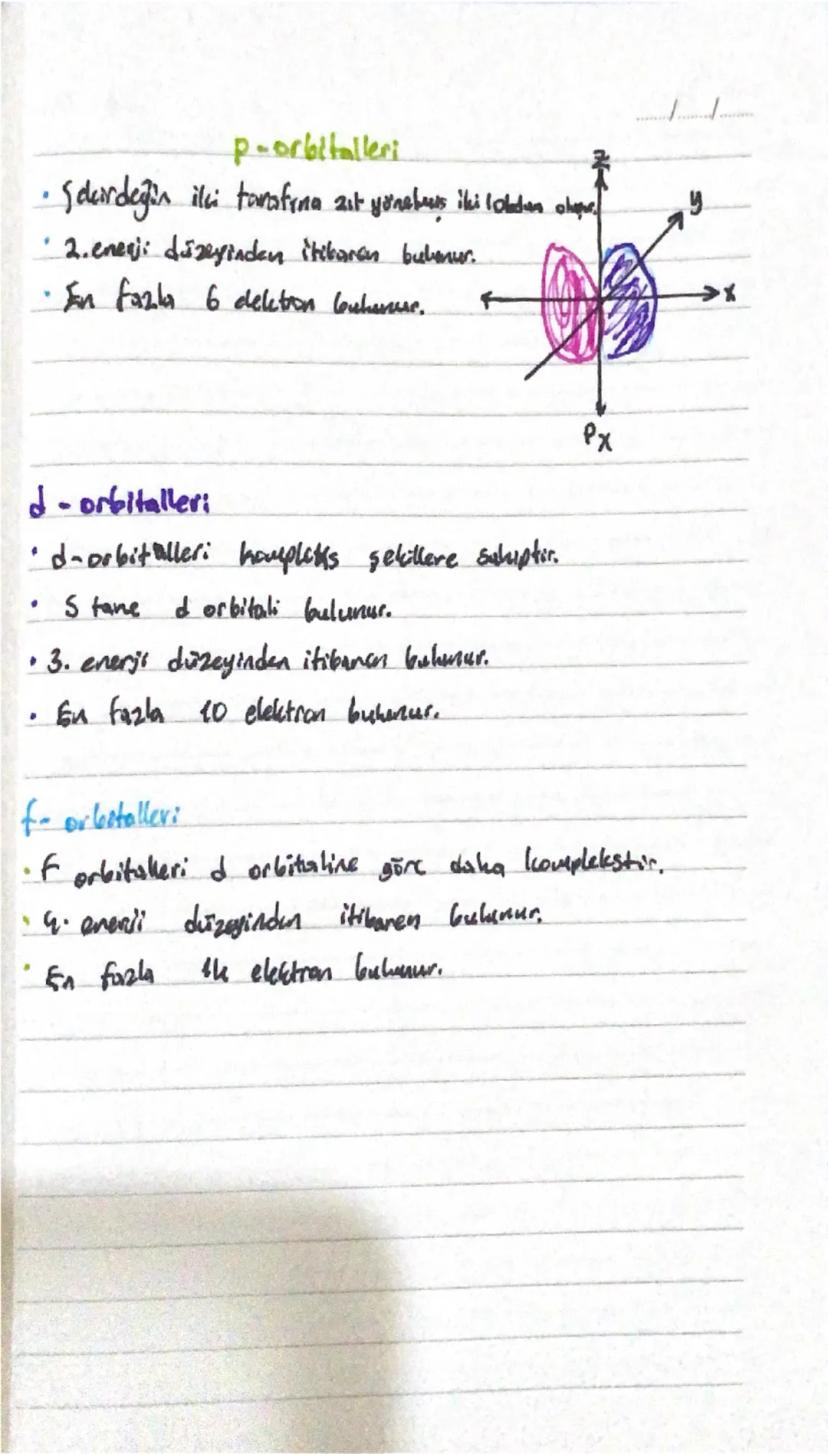 p-orbitalleri
• Çekirdeğin iki tarafına zıt yönelmiş iki lobdan oluşur.
• 2. enerji düzeyinden itibaren bulunur.
• En fazla 6 elektron bulunur.
z
y
x
Px
d-orbitalleri
• d-orbitalleri kompleks şekillere sahiptir.
• 5 tane d orbitali bulunur.
• 3. enerji düzeyinden itibaren bulunur.
• En fazla 10 elektron bulunur.
f-orbitalleri
• f orbitalleri d orbitaline göre daha komplekstir.
• 4. enerji düzeyinden itibaren bulunur.
• En fazla 14 elektron bulunur.